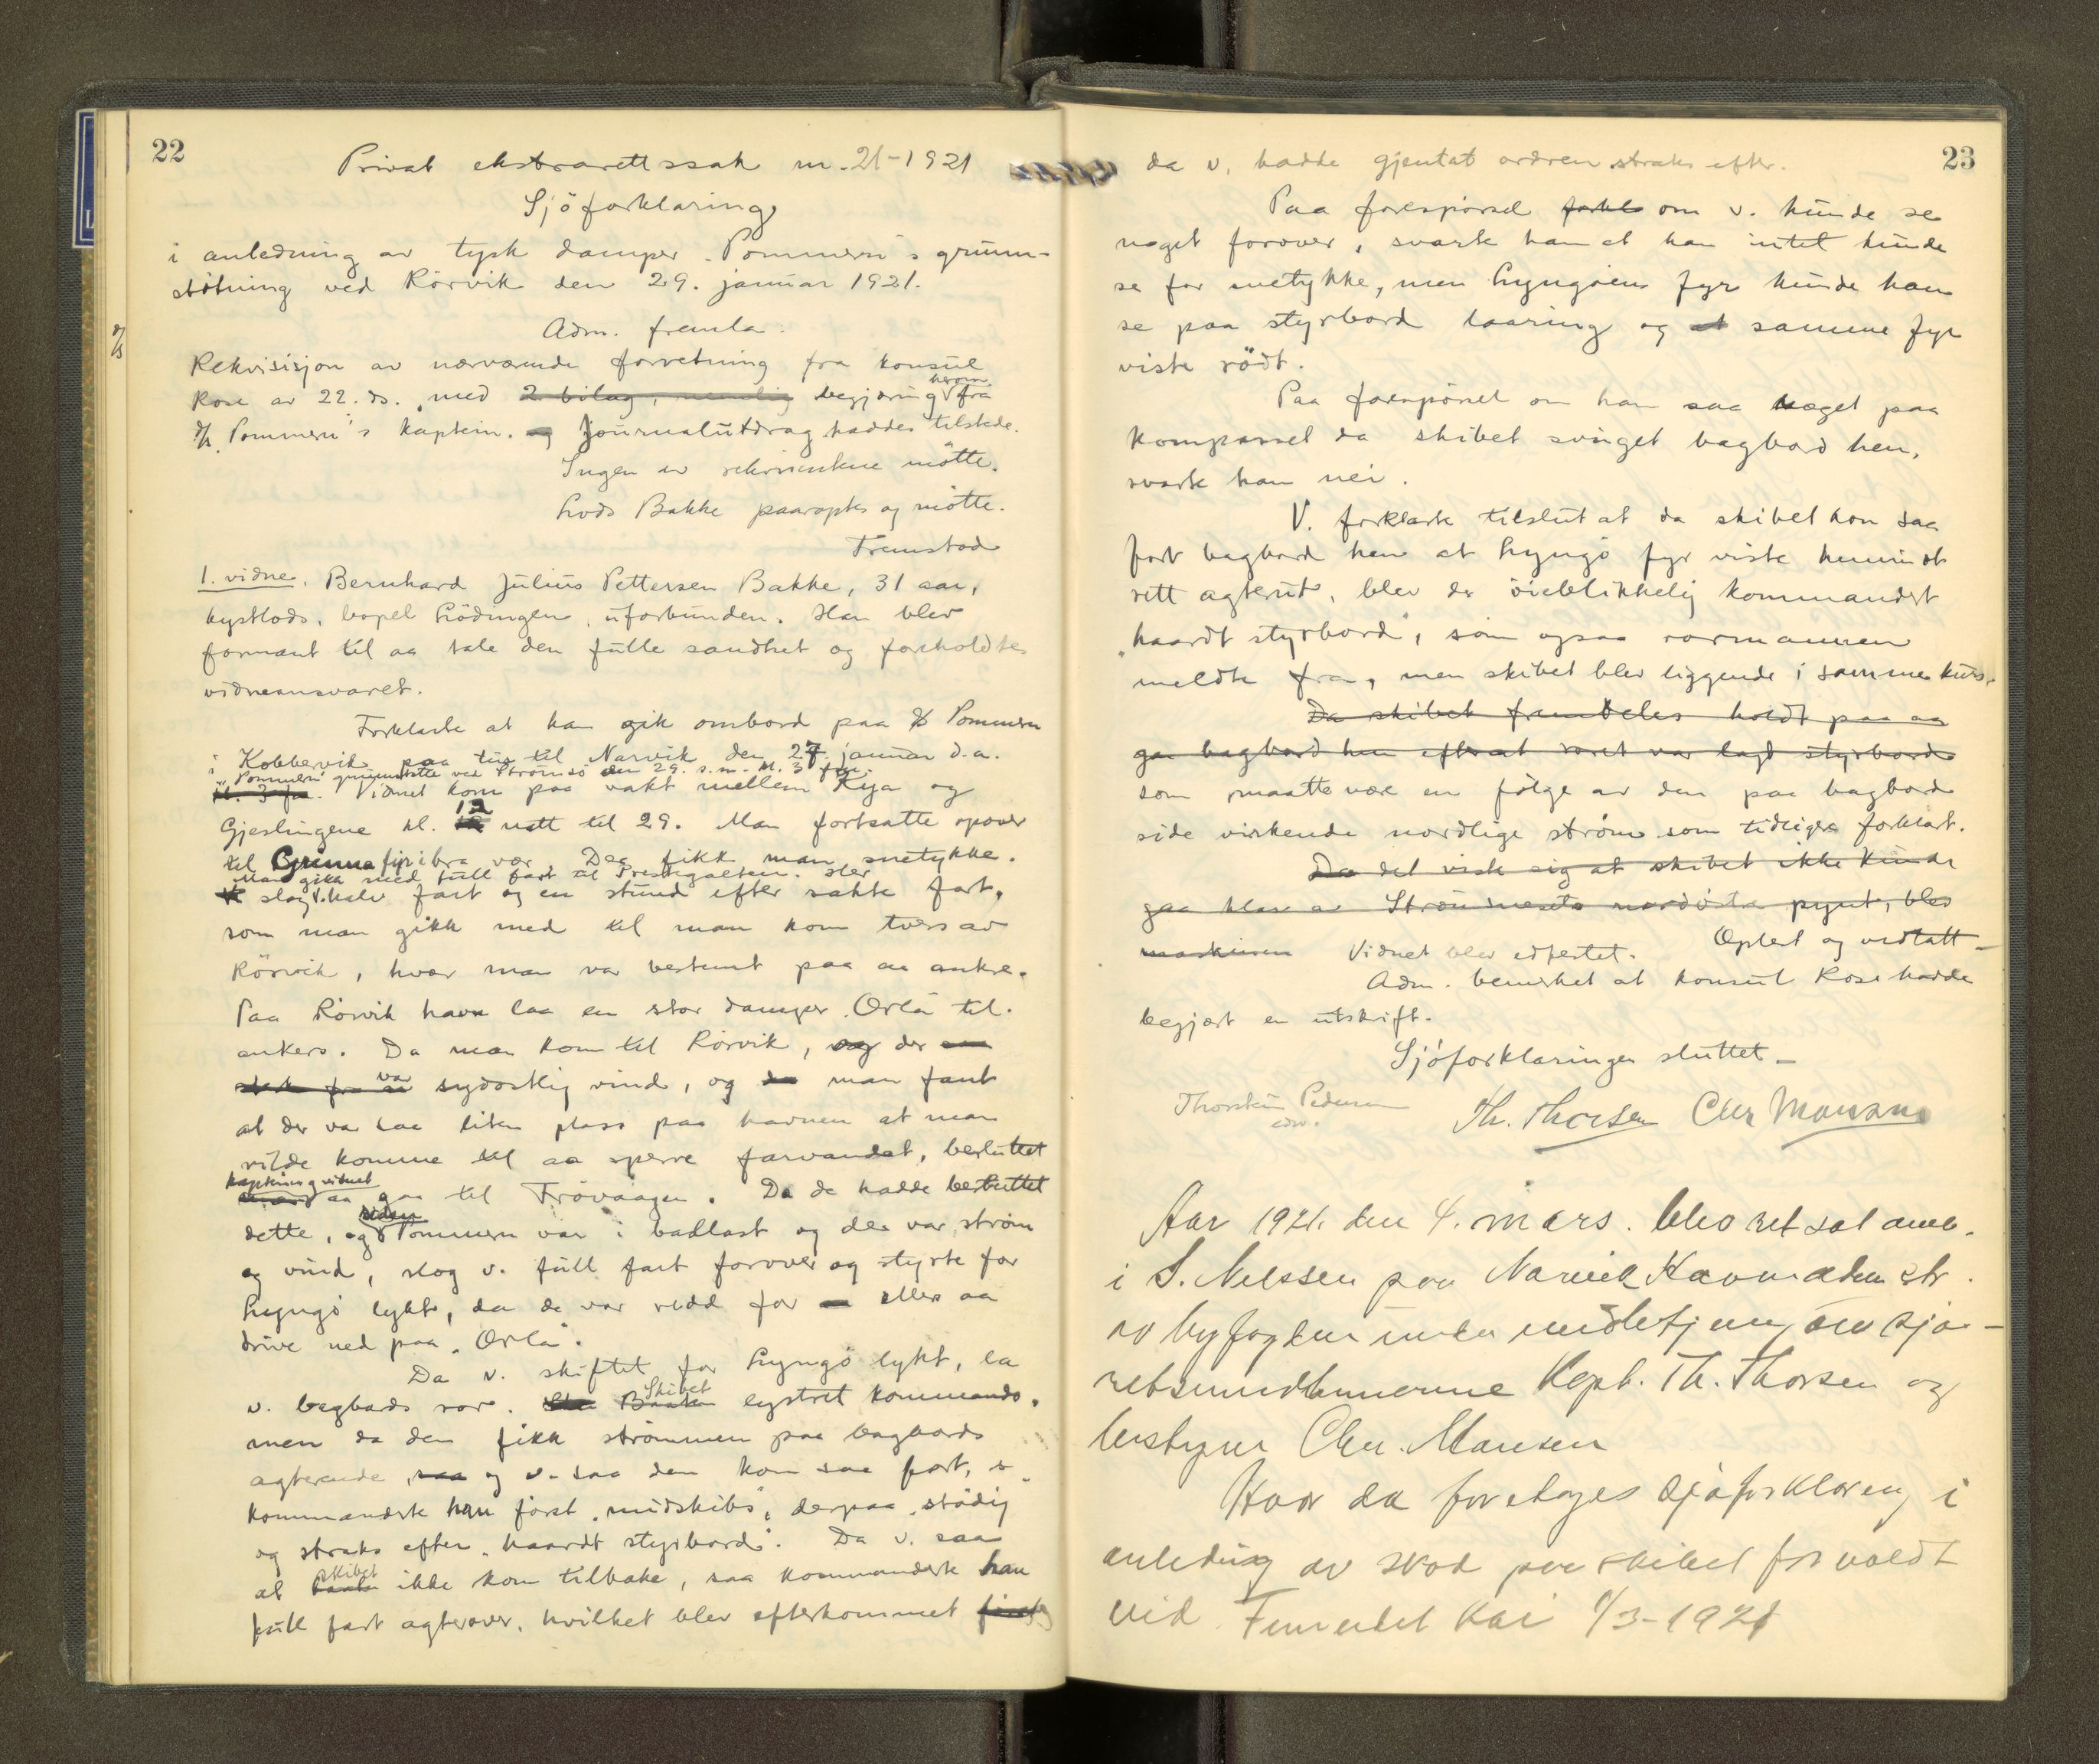 22
Privat ekstrarettssak nr. 21-1921
Sjöforklaring
i anledning av tysk damper "Pommern"s grunn-
stötning ved Rörvik den 29. januar 1921.
Adm. fremla:
Rekvisisjon av nærværende forretning fra konsul
Rose av 22. ds. med 2 bilag, nemlig begjæring herom fra
D/S "Pommern"s kaptein. og Journalutdrag haddes tilstede.
Ingen av rekvirentene mötte.
Lods Bakke paaroptes og mötte.
Fremstod
1. vidne. Bernhard Julius Pettersen Bakke, 31 aar,
kystlods, bopel Lödingen, uforbunden. Han blev
formant til aa tale den fulle sandhet og foreholdtes
vidneansvaret.
Forklarte at han gik ombord paa D/S Pommern
i Kobbervik paa tur til Narvik den 27. januar d.a.
"Pommern" grunnstötte ved Strömsö den 29. s.m. kl. 3 fm.
kl. 3 fm. Vidnet kom paa vakt mellem Kya og
Gjeslingene kl. 12 natt til 29. Man fortsatte opover
til Grinna fyr i bra vær. Der fikk man snetykke.
Man gikk med full fart til Prestegalten. Her
slog v. halv fart og en stund efter sakte fart,
som man gikk med til man kom tvers av
Rörvik, hvor man var bestemt paa aa ankre.
Paa Rörvik havn laa en stor damper "Orla" til
ankers. Da man kom til Rörvik, var der
sydostlig vind, og man fant
at der var saa liten plass paa havnen at man
vilde komme til aa sperre farvandet, besluttet
kaptein og vidnet
aa gaa til Frövaagen. Da de hadde besluttet
dette, og siden Pommern var i ballast og der var ström
og vind, slog v. full fart forover og styrte for
Lyngö lykt, da de var redd for ellers aa
drive ned paa "Orla".
Da v. skiftet for Lyngö lykt, la
v. bagbords ror. Skibet lystret kommando,
men da den fikk strömmen paa bagbords
agterende, saa og v. saa den kom saa fort,
kommanderte han först "midskibs", derpaa "stödig"
og straks efter "haardt styrbord". Da v. saa
at skibet ikke kom tilbake, saa kommanderte han
full fart agterover, hvilket blev efterkommet
23
da v. hadde gjentat ordren straks efter.
Paa forespörsel om v. kunde se
noget forover, svarte han at han intet kunde
se for snetykke, men Lyngöens fyr kunde han
se paa styrbord laaring og at samme fyr
viste rödt.
Paa forespörsel om han saa noget paa
kompasset da skibet svinget bagbord hen,
svarte han nei.
V. forklarte tilslut at da skibet kom saa
fort bagbord hen at Lyngö fyr viste
rett agterut, blev der öieblikkelig kommandert
"haardt styrbord", som ogsaa rormannen
meldte fra, men skibet blev liggende i samme kurs.
Da skibet fremdeles holdt paa aa
gaa bagbord hen efterat roret var lagt styrbord
som maatte være en fölge av den paa bagbord
side virkende nordlige ström som tidligere forklart.
Da det viste sig at skibet ikke kunde
gaa klar av Strömnesets nordöstre pynt, blev
maskinen Vidnet blev edfestet. Oplest og vedtatt _
Adm. bemerket at konsul Rose hadde
begjært en utskrift.
Sjöforklaringen sluttet _
Thorstein Pedersen
edv.
Th. Thorsen Chr Monsen
Aar 1921. den 4. mars. blev ret sat
i S. Nilssen paa Narvik
av byfogden under medbetjening av sjö-
retsmedlemmerne Kapt. Th. Thorsen og
bestyrer Chr. Monsen
Hvor da foretages Sjöforklaring i
anledning av skade paa skibet forvoldt
ved kai 1/3-1921